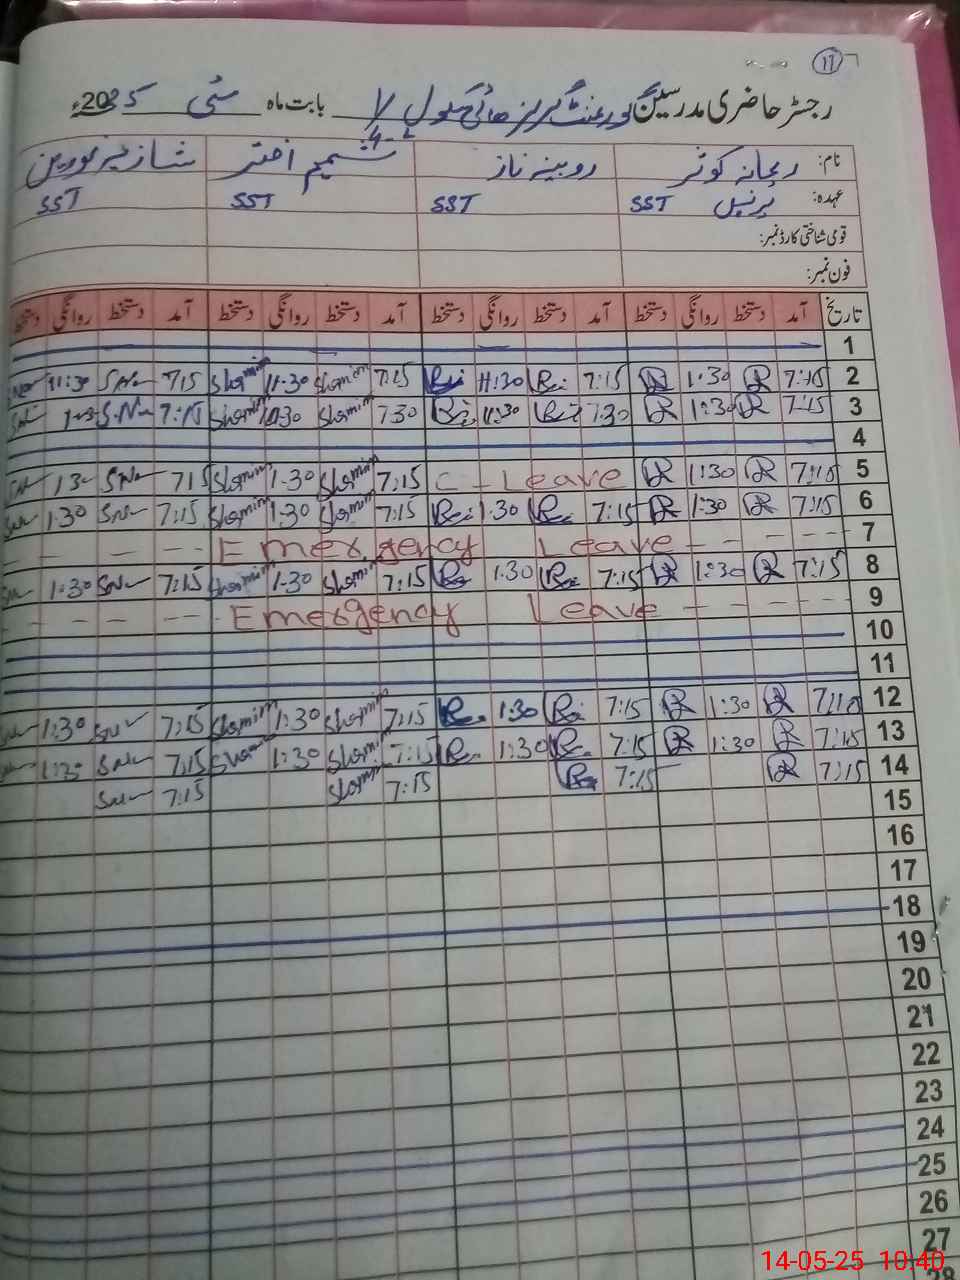 11
رجسٹر حاضری مدرسین گورنمنٹ گرلز ہائی سکول بابت ماہ مئی 2025ء
نام: ریحانہ کوثر روبینہ ناز شمیم اختر شازیہ نورین
عہدہ: پرنسپل SST SST SST SST
قومی شناختی کارڈ نمبر:
فون نمبر:
تاریخ آمد دستخط روانگی دستخط آمد دستخط روانگی دستخط آمد دستخط روانگی دستخط آمد دستخط روانگی دستخط
1
2 7:15 R 1:30 R 7:15 11:30 7:15 Shamim 11:30 Shamim 7:15 11:30
3 7:15 R 1:30 R 7:30 11:30 7:30 Shamim Shamim 7:15
4
5 7:15 R 1:30 R C-Leave 7:15 Shamim 1:30 Shamim 7:15
6 7:15 R 1:30 R 7:15 1:30 7:15 Shamim 1:30 Shamim 7:15 1:30
7 Emergency Leave
8 7:15 R 1:30 R 7:15 1:30 7:15 Shamim 1:30 Shamim 7:15 1:30
9 Emergency Leave
10
11
12 R 1:30 R 7:15 1:30 7:15 Shamim 1:30 Shamim 7:15 1:30
13 7:15 R 1:30 R 7:15 1:30 7:15 Shamim 1:30 Shamim 7:15 1:30
14 7:15 R 7:15 7:15 Shamim 7:15
15
16
17
18
19
20
21
22
23
24
25
26
27
28
14-05-25 10:40